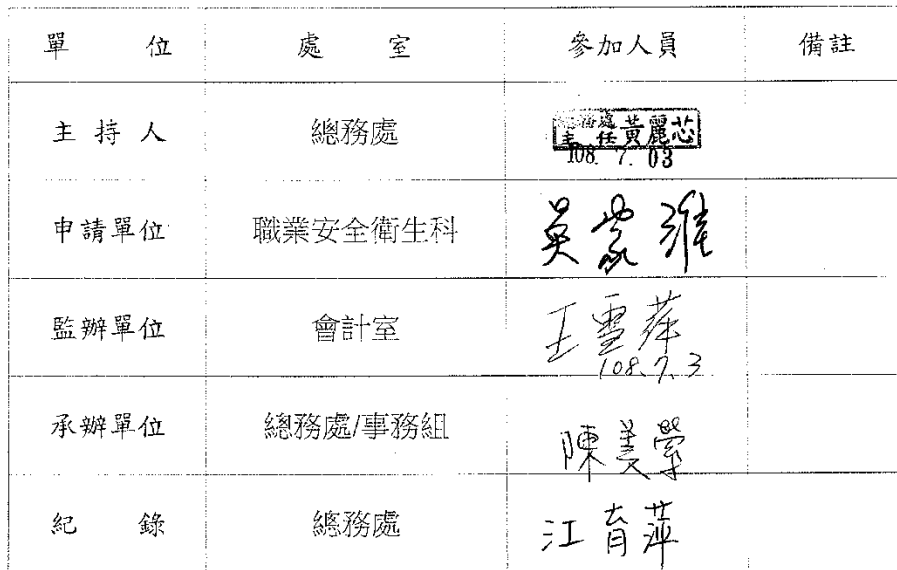 單 位 處 室 參加人員 備註
主 持 人 總務處 總務處主任黃麗芯
108. 7. 03
申請單位 職業安全衛生科 吳家淮
監辦單位 會計室 王雪萍
108.7.3
承辦單位 總務處/事務組 陳美學
紀 錄 總務處 江育萍